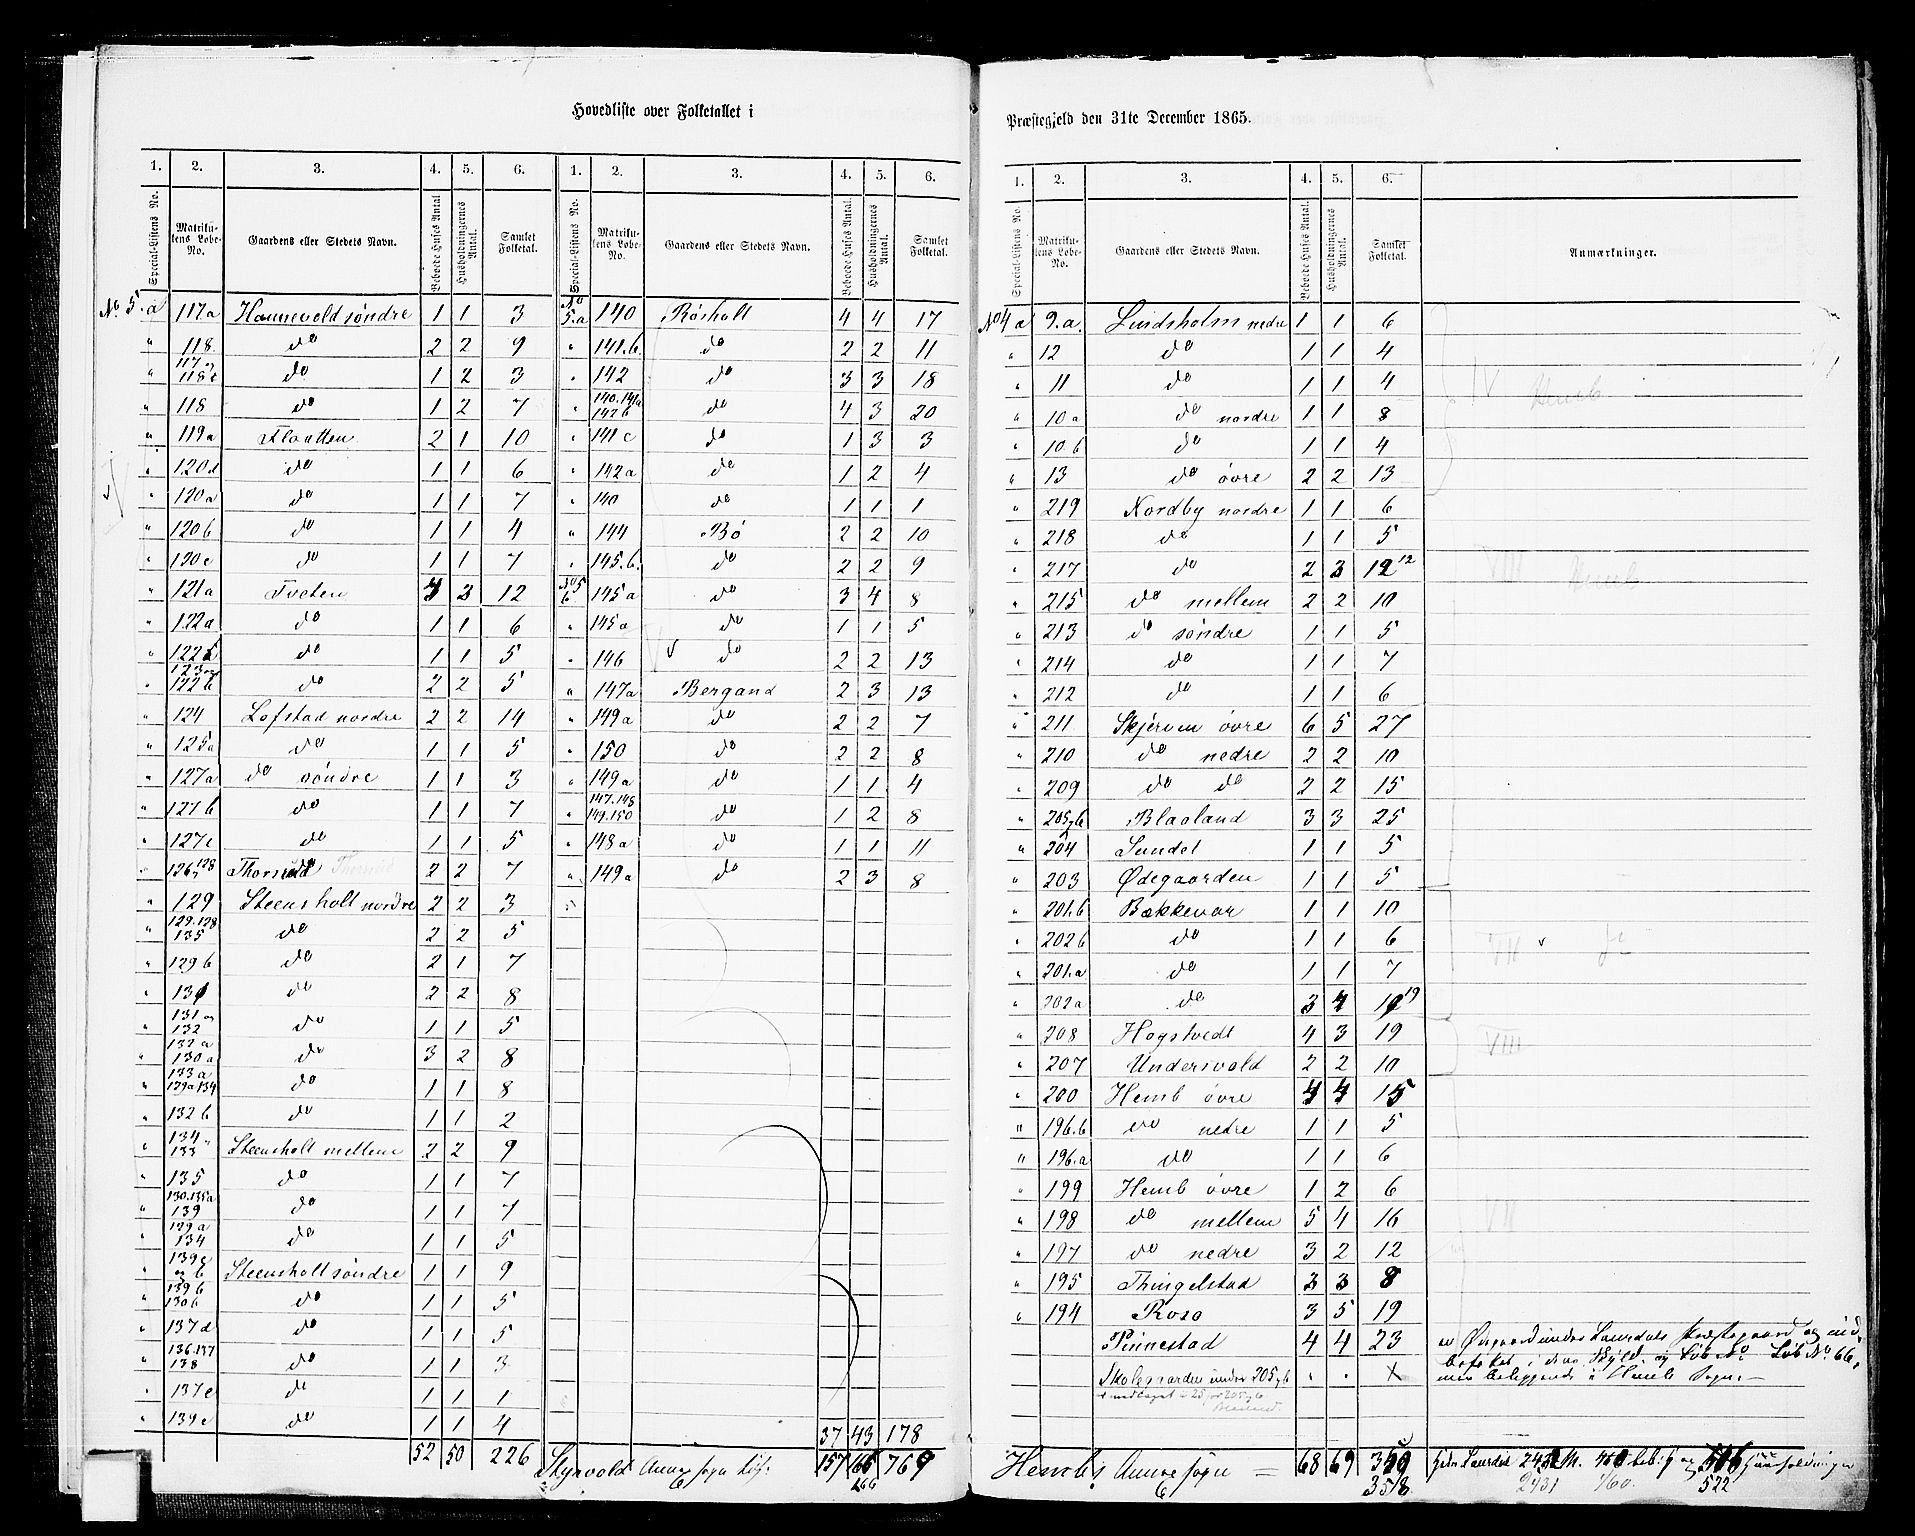 Hovedliste over Folketallet i
1. 2. 3. 4. 5. 6. 1. 2. 3. 4. 5. 6.
Special-Listens No. Matrikulens Løbe-No. Gaardens eller Stedets Navn. Beboede Huses Antal Husholdningernes Antal. Samlet Folketal. Special-Listens No. Matrikulens Løbe-No. Gaardens eller Stedets Navn. Beboede Huses Antal. Husholdningernes Antal. Samlet Folketal.
No. 5. a 117a Hanneveld søndre 1 1 3 No 5.a 140 Røsholt 4 4 17
" 118. do 2 2 9 " 141.b. do 2 2 11
" 117 og 118c do 1 2 3 " 142 do 3 3 18
" 118 do 1 2 7 " 140.141a 142b do 4 3 20
" 119a Flaatten 2 1 10 " 141c do 1 3 3
" 120d do 1 1 6 " 142a do 1 2 4
" 120a do 1 1 7 " 140 do 1 1 1
" 120b do 1 1 4 " 144 Bø 2 2 10
" 120c do 1 1 7 " 145.b. do 2 2 9
" 121a Tveten 3 12 No 5 b. 145a do 3 4 8
" 122a do 1 1 6 " 145a do 1 1 5
" 122 do 1 1 5 " 146 do 2 2 13
" 123 og 122b do 2 2 5 " 147a Bergand 2 3 13
" 124 Lofstad nordre 2 2 14 " 149a do 2 2 7
" 125a do 1 1 5 " 150 do 2 2 8
" 127a do søndre 1 1 3 " 149a do 1 1 4
" 127b do 1 1 7 " 147.148 149.150 do 1 2 8
" 127c do 1 1 5 " 148a do 1 1 11
" 126 128 Thorsrud 2 2 7 " 149a do 2 3 8
" 129 Steensholt nordre 2 2 3
" 129.128 135 do 2 2 5
" 129b do 2 1 7
" 131 do 2 2 8
" 131 og 132 do 1 1 5
" 132a 130a do 3 2 8
" 133a 129a 134 do 1 1 8
" 132b do 1 1 2
" 134 133 Steensholt mellem 2 2 9
" 135 do 1 1 7
" 130.135a 139 do 1 1 7
" 129a 134 do 1 1 5
" 139c og b Steensholt søndre 1 1 9
" 139b 130b do 1 1 5
" 137d do 1 1 5
" 136.137 138 do 1 1 3
" 137c do 1 1 1
" 139c do 1 1 4 37 43 178
52 50 226 Styrvold Annex sogn 157 166 769
266
Præstegjeld den 31te December 1865.
1. 2. 3. 4. 5. 6.
Special-Listens No. Matrikulens Løbe-No. Gaardens eller Stedets Navn. Beboede Huses Antal. Husholdningernes Antal. Samlet Folketal. Anmærkninger.
No 4 a 9.a. Lindsholm nedre 1 1 6
" 12 do 1 1 4
" 11 do 1 1 4 IV Hemb
" 10a do nordre 1 1 8
" 10.b do 1 1 4
" 13 do øvre 2 2 13
" 219 Nordby nordre 1 1 6
" 218 do 1 1 5
" 217 do 2 3 12 12 VIII Hemb
" 215 do mellem 2 2 10
" 213 do søndre 1 1 5
" 214 do 1 1 7
" 212 do 1 1 6
" 211 Skjerven øvre 6 5 27
" 210 do nedre 2 2 10
" 209 do do 2 2 15
" 205,6 Blaaland 3 3 25
" 204 Sundet 1 1 5
" 203 Ødegaarden 1 1 5
" 201.b Bækkevar 1 1 10
" 202b do 1 1 6 VII
" 201.a do 1 1 7
" 202a do 3 4 19
" 208 Hogstvedt 4 3 19 VIII
" 207 Undersvold 2 2 10
" 200 Hemb øvre 4 4 15
" 196.b do nedre 1 1 5
" 196.a do 1 1 6
" 199 Hemb øvre 1 2 6
" 198 do mellem 5 4 16 VII
" 197 do nedre 3 2 12
" 195 Thingelstad 3 3 8
" 194 Roso 3 5 19
Pinnestad 4 4 23 er Ødegaard under Laurdals Præstegaard og ind-
befattet i dens Skyld, og Løb No. Løb No. 66,
Skolegaarden under 205,6 " " X men beliggende i Hemb Sogn.
Hembs Annex sogn = 68 69 350
3518 2431 460. 522